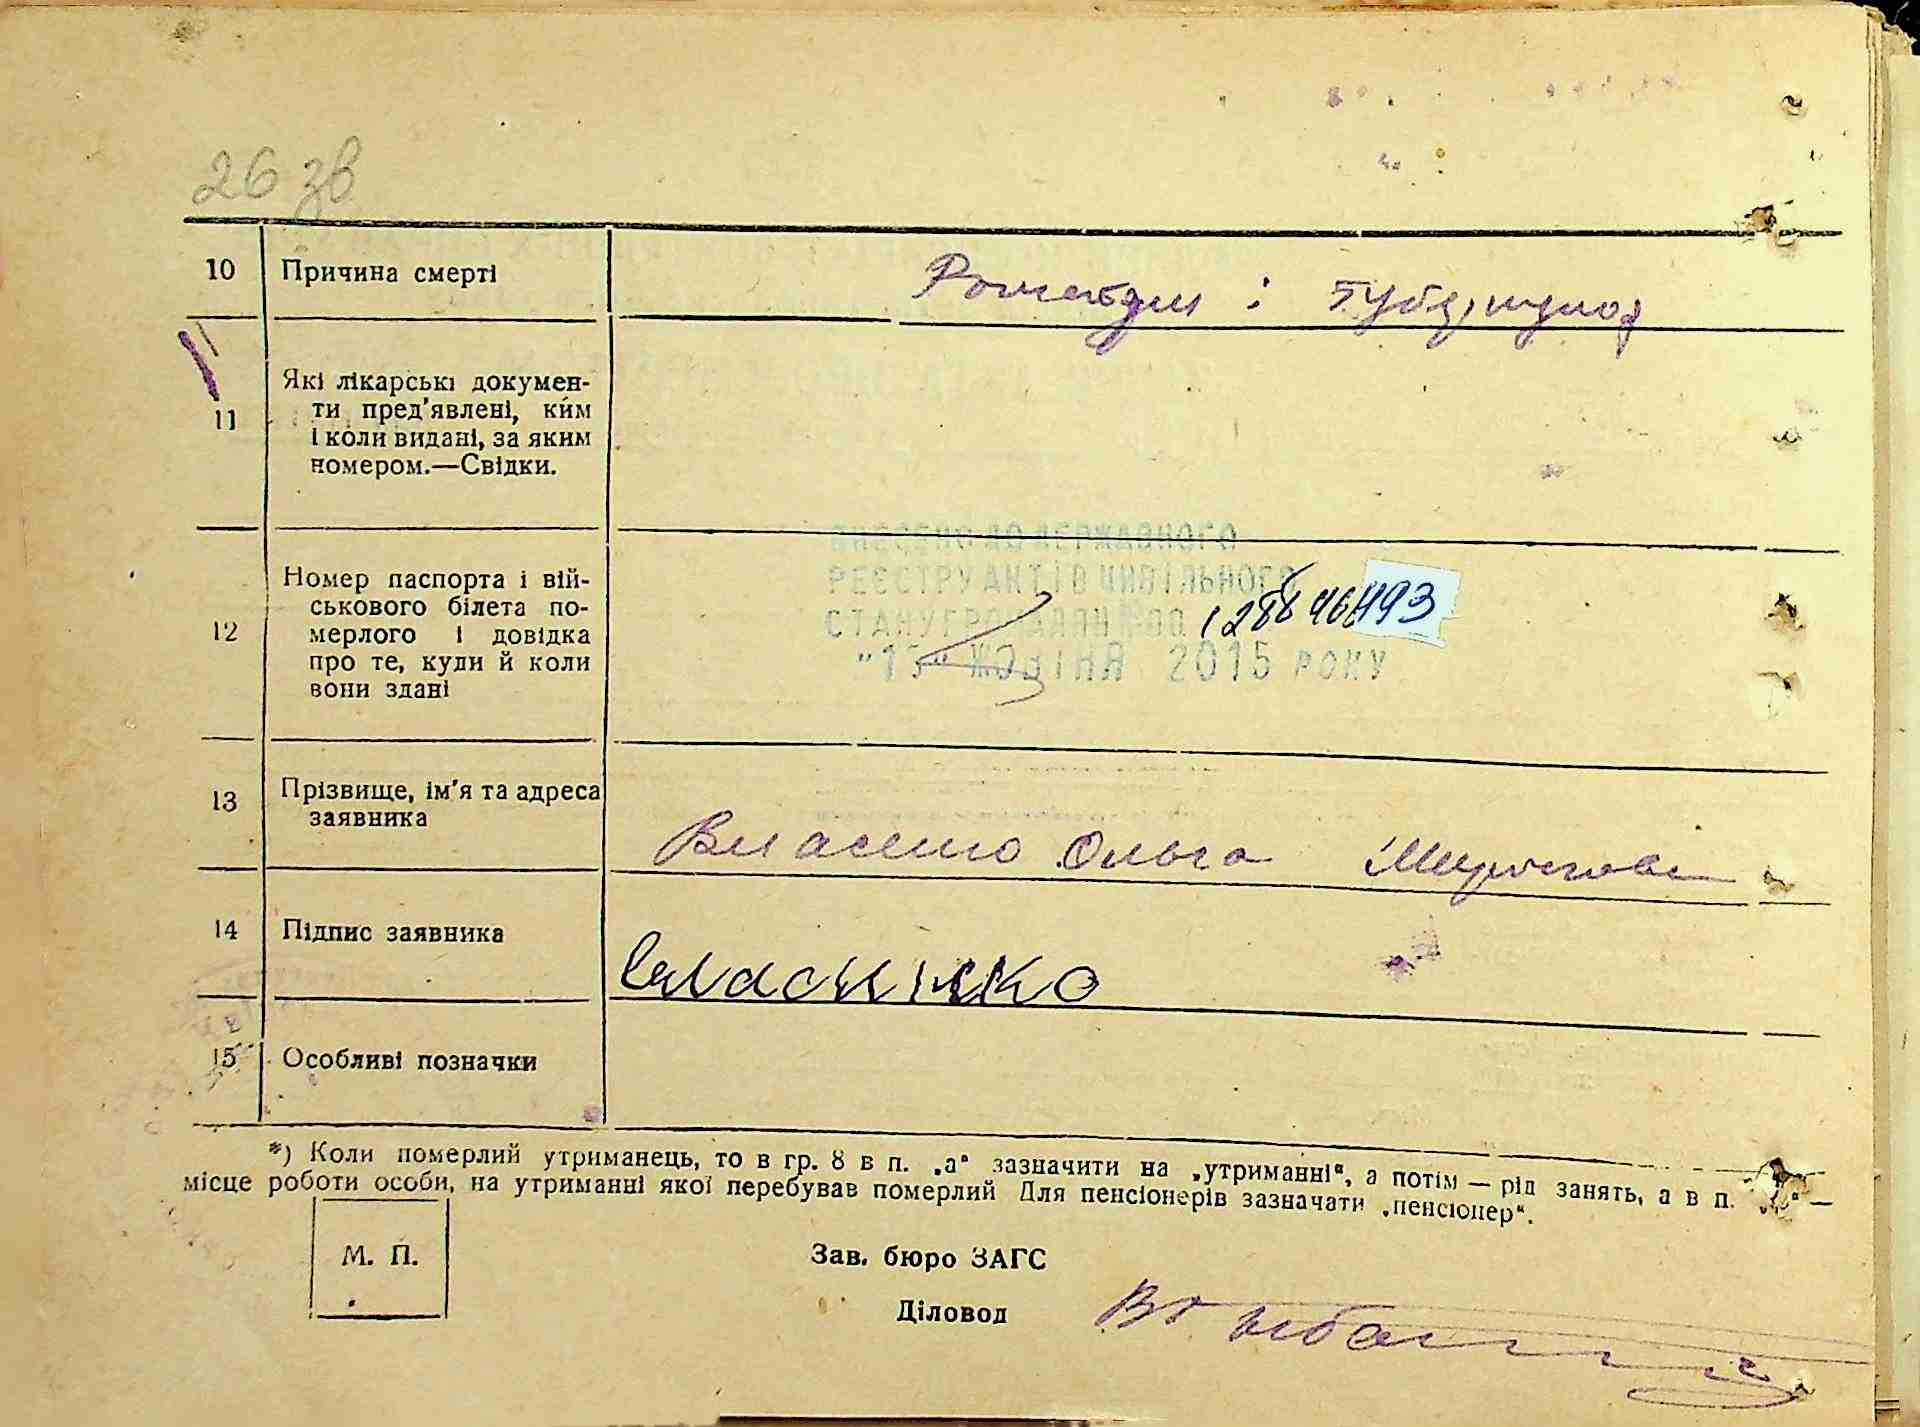 26 зв
10 Причина смерті
11 Які лікарські докумен-
ти пред'явлені, ким
і коли видані, за яким
номером.—Свідки.
ВНЕСЕНО ДО ДЕРЖАВНОГО
РЕЄСТРУ АКТІВ ЦИВІЛЬНОГО
СТАНУ ГРОМАДЯН
ЖОВТНЯ 2015 РОКУ
12 Номер паспорта і вій-
ськового білета по-
мерлого і довідка
про те, куди й коли
вони здані
13 Прізвище, ім'я та адреса
заявника
Власенко Ольга
14 Підпис заявника
15 Особливі позначки
*) Коли померлий утриманець, то в гр. 8 в п. „а" зазначити на „утриманні", а потім — рід занять, а в п.
місце роботи особи, на утриманні якої перебував померлий Для пенсіонерів зазначати „пенсіонер".
М. П.
Зав. бюро ЗАГС
Діловод